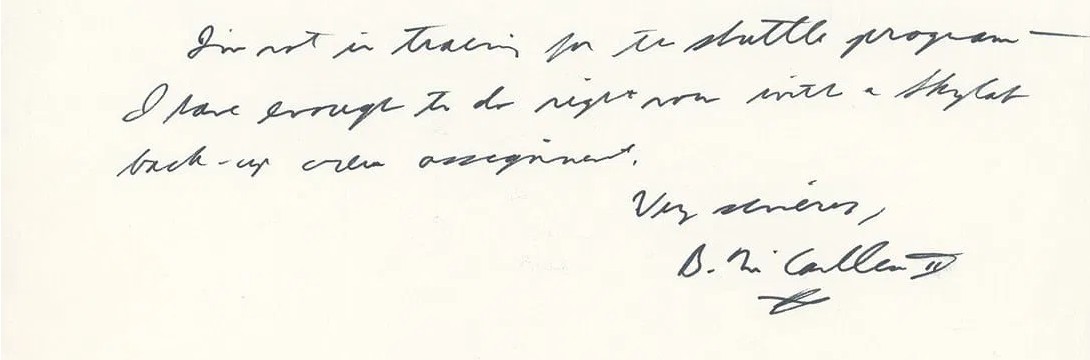 I'm not in training for the shuttle program —
I have enough to do right now with a Skylab
back-up crew assignment.
Very sincerely,
B. McCandless II